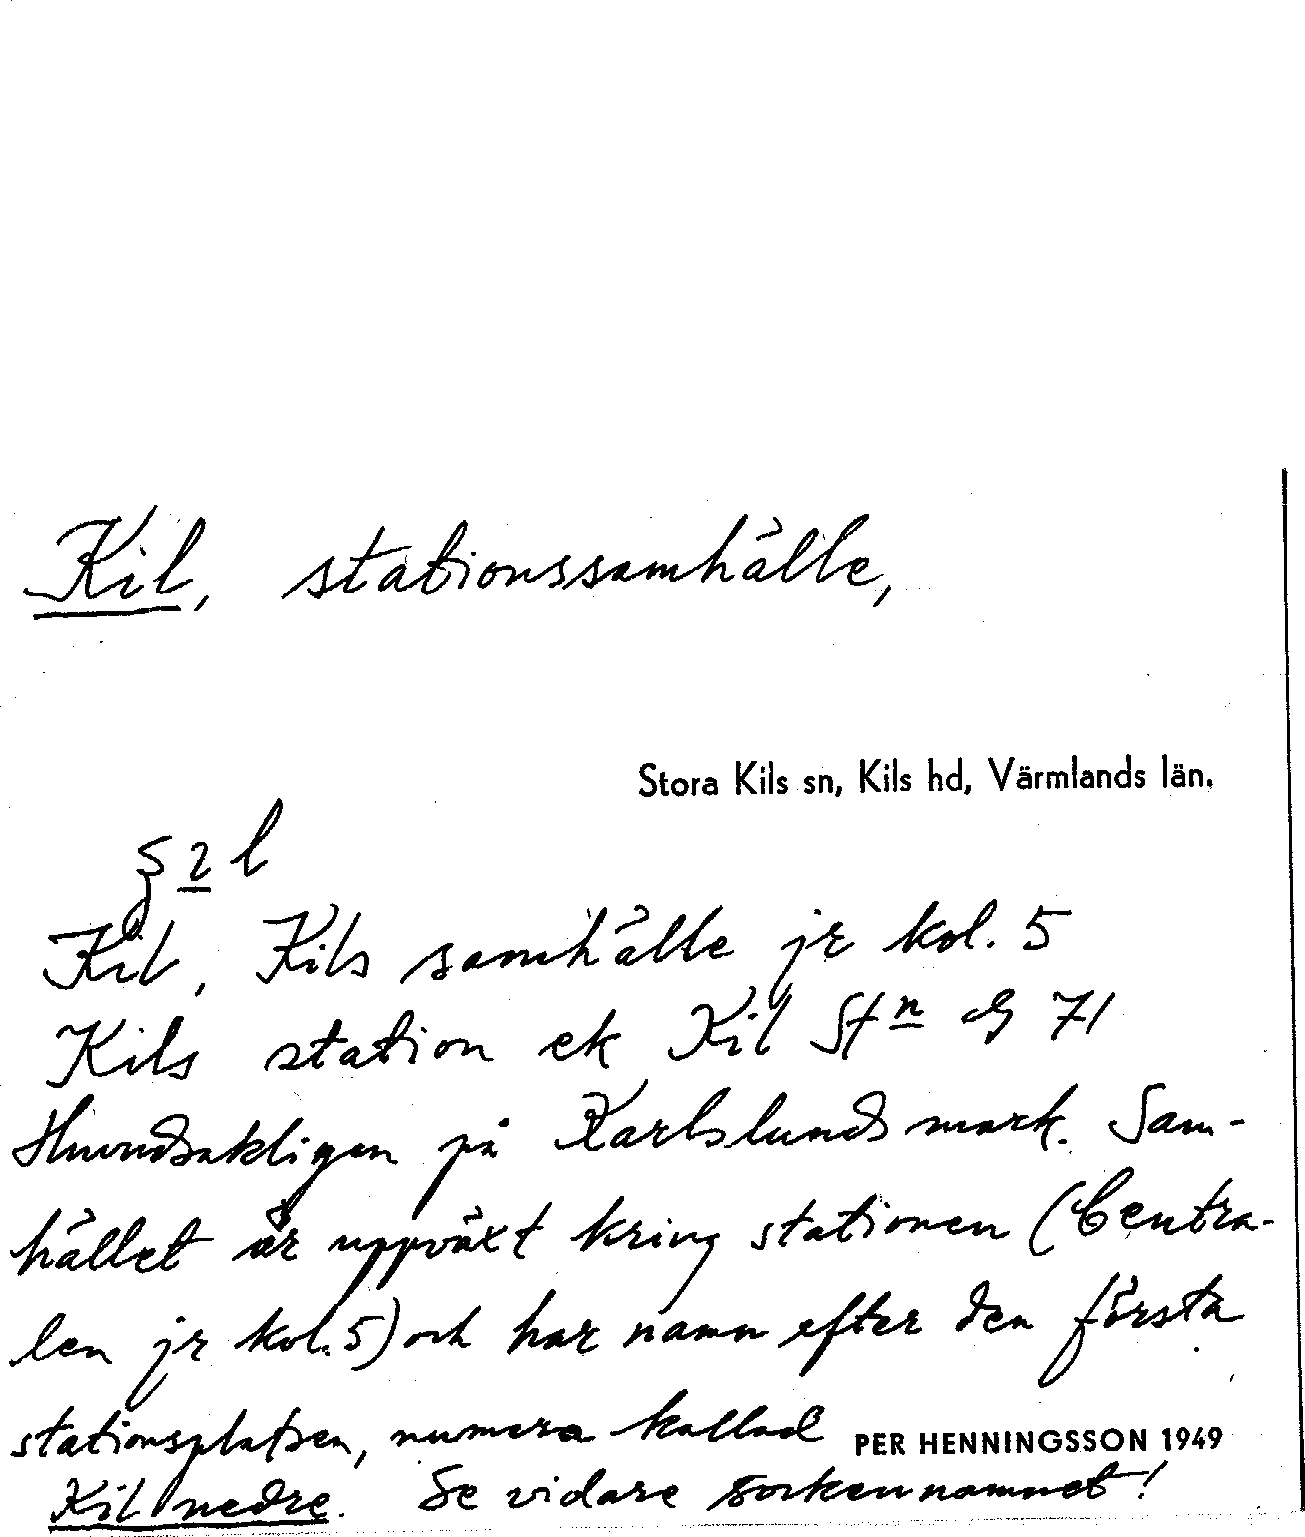 Kil, stationssamhälle,
Stora Kils sn, Kils hd, Värmlands län.
§ 2 l
Kil, Kils samhälle jr kol. 5
Kils station ek Kil Stn G 71
Huvudsakligen på Karlslunds mark. Sam-
hället är uppväxt kring stationen (Centra-
len jr kol. 5) och har namn efter den första
stationsplatsen, numera kallad
PER HENNINGSSON 1949
Kil nedre. Se vidare sockennamnet!